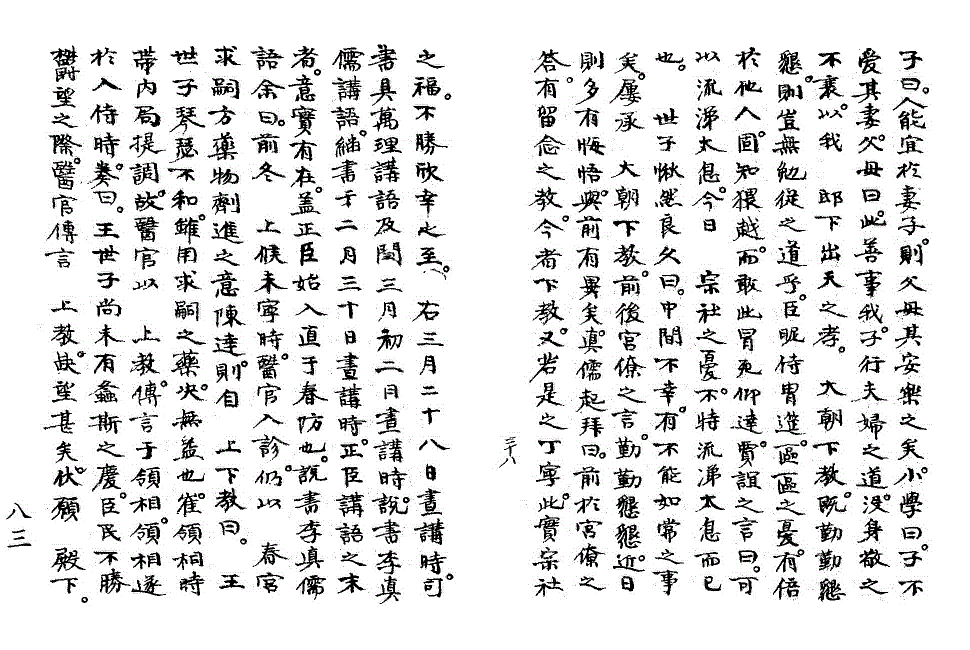 子曰。人能宜於妻子。則父母其安樂之矣。小學曰。子不
愛其妻。父母曰。此善事我。子行夫婦之道。沒身敬之
不衰。以我　邸下出天之孝。　大朝下敎。旣勤勤懇
懇。則豈無勉從之道乎。臣昵侍胄筵。區區之憂。有倍
於他人。固知猥越。而敢此冒死仰達。賈誼之言曰。可
以流涕太息。今日　宗社之憂。不特流涕太息而已
也。　世子愀然良久曰。中間不幸。有不能如常之事
矣。屢承　大朝下敎。前後宮僚之言。勤勤懇懇。近日
則多有悔悟。與前有異矣。眞儒起拜曰。前於宮僚之
答。有留念之敎。今者下敎。又若是之丁寧。此實宗社
三十八
之福。不勝欣幸之至。　右三月二十八日晝講時。司
書具萬理講語及閏三月初二日晝講時。說書李眞
儒講語。細書于二月三十日晝講時。正臣講語之末
者。意實有在。蓋正臣始入直于春防也。說書李眞儒
語余曰。前冬　上候未寧時。醫官入診。仍以　春宮
求嗣方藥物劑進之意陳達。則自　上下敎曰。　王
世子琴瑟不和。雖用求嗣之藥。決無益也。崔領相時
帶內局提調。故醫官以　上敎。傳言于領相。領相遂
於入侍時。奏曰。王世子尙未有螽斯之慶。臣民不勝
鬱望之際。醫官傳言　上敎。缺望甚矣。伏願　殿下。
八三